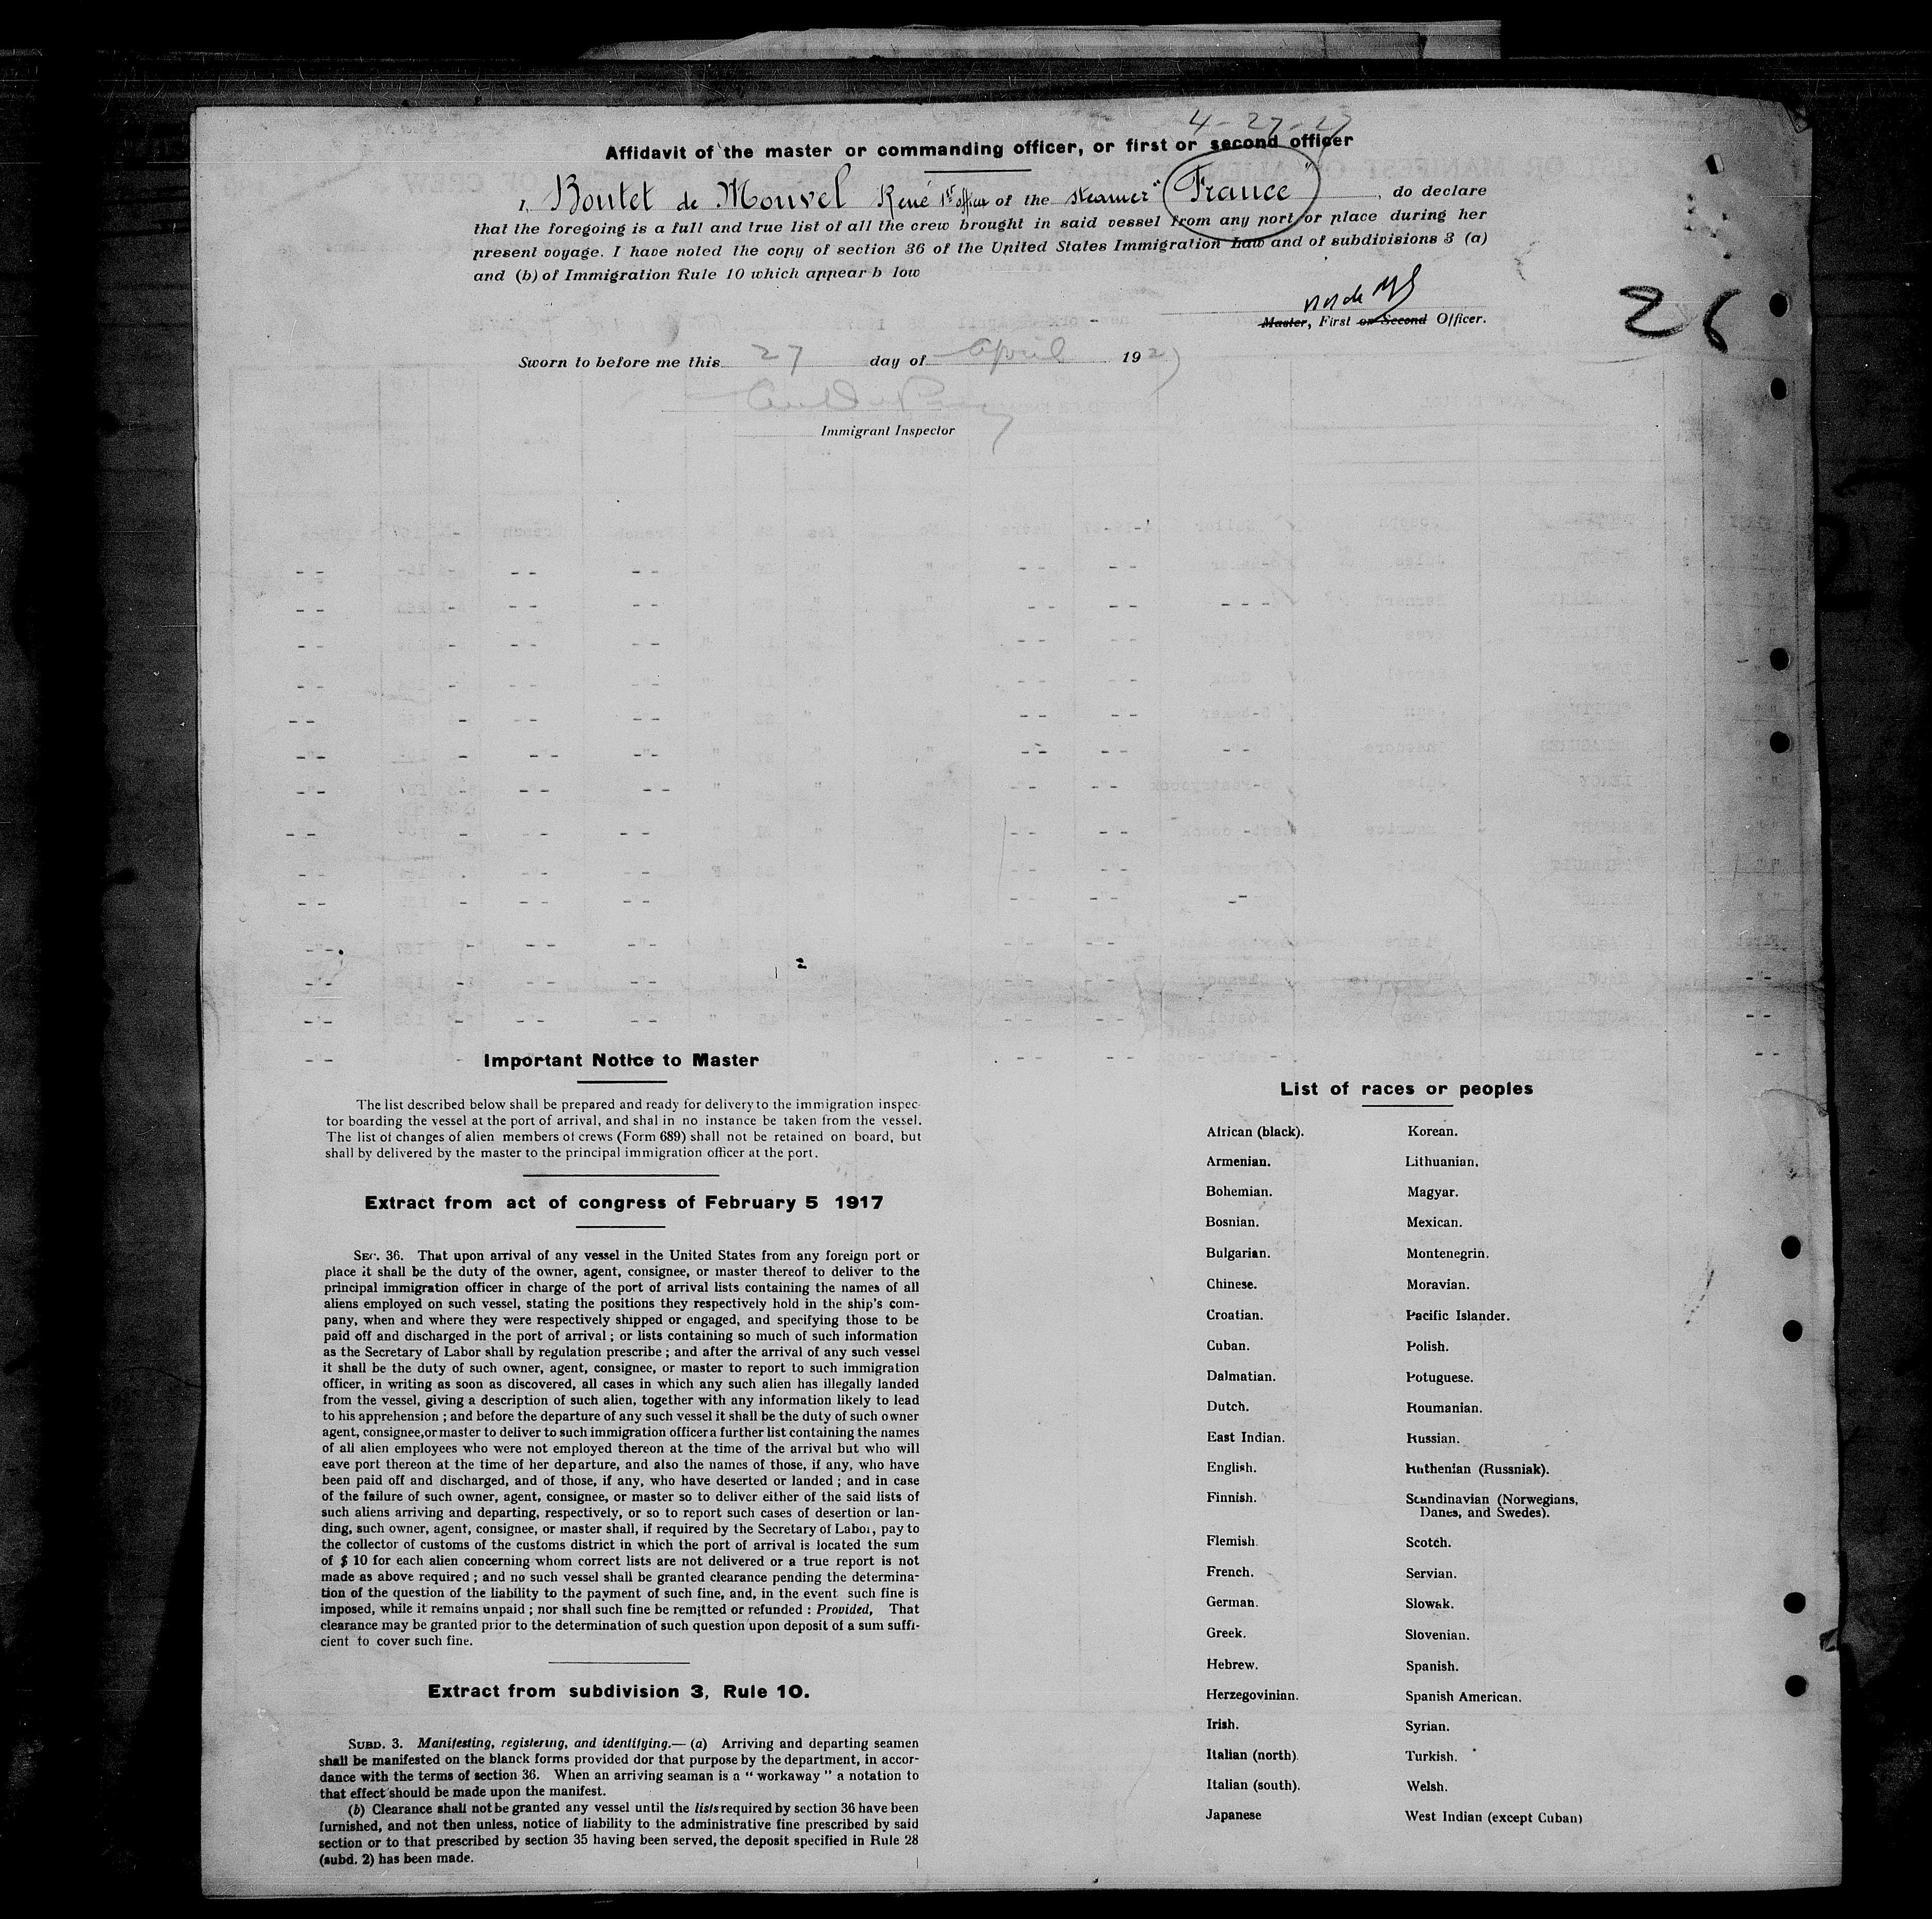 4-27-27
Affidavit of the master or commanding officer, or first or second officer
I, Boutet de Monvel René 1st officer of the steamer "France", do declare
that the foregoing is a full and true list of all the crew brought in said vessel from any port or place during her
present voyage. I have noted the copy of section 36 of the United States Immigration Law and of subdivisions 3 (a)
and (b) of Immigration Rule 10 which appear b low
26
Master, First or Second Officer.
Sworn to before me this 27 day of April 1927
Immigrant Inspector
Important Notice to Master
The list described below shall be prepared and ready for delivery to the immigration inspec-
tor boarding the vessel at the port of arrival, and shal in no instance be taken from the vessel.
The list of changes of alien members of crews (Form 689) shall not be retained on board, but
shall by delivered by the master to the principal immigration officer at the port.
Extract from act of congress of February 5 1917
SEC. 36. That upon arrival of any vessel in the United States from any foreign port or
place it shall be the duty of the owner, agent, consignee, or master thereof to deliver to the
principal immigration officer in charge of the port of arrival lists containing the names of all
aliens employed on such vessel, stating the positions they respectively hold in the ship's com-
pany, when and where they were respectively shipped or engaged, and specifying those to be
paid off and discharged in the port of arrival ; or lists containing so much of such information
as the Secretary of Labor shall by regulation prescribe ; and after the arrival of any such vessel
it shall be the duty of such owner, agent, consignee, or master to report to such immigration
officer, in writing as soon as discovered, all cases in which any such alien has illegally landed
from the vessel, giving a description of such alien, together with any information likely to lead
to his apprehension ; and before the departure of any such vessel it shall be the duty of such owner
agent, consignee, or master to deliver to such immigration officer a further list containing the names
of all alien employees who were not employed thereon at the time of the arrival but who will
eave port thereon at the time of her departure, and also the names of those, if any, who have
been paid off and discharged, and of those, if any, who have deserted or landed ; and in case
of the failure of such owner, agent, consignee, or master so to deliver either of the said lists of
such aliens arriving and departing, respectively, or so to report such cases of desertion or lan-
ding, such owner, agent, consignee, or master shall, if required by the Secretary of Labor, pay to
the collector of customs of the customs district in which the port of arrival is located the sum
of $ 10 for each alien concerning whom correct lists are not delivered or a true report is not
made as above required ; and no such vessel shall be granted clearance pending the determina-
tion of the question of the liability to the payment of such fine, and, in the event such fine is
imposed, while it remains unpaid ; nor shall such fine be remitted or refunded : Provided, That
clearance may be granted prior to the determination of such question upon deposit of a sum suffi-
cient to cover such fine.
Extract from subdivision 3, Rule 10.
SUBD. 3. Manifesting, registering, and identifying.— (a) Arriving and departing seamen
shall be manifested on the blanck forms provided dor that purpose by the department, in accor-
dance with the terms of section 36. When an arriving seaman is a " workaway " a notation to
that effect should be made upon the manifest.
(b) Clearance shall not be granted any vessel until the lists required by section 36 have been
furnished, and not then unless, notice of liability to the administrative fine prescribed by said
section or to that prescribed by section 35 having been served, the deposit specified in Rule 28
(subd. 2) has been made.
List of races or peoples
African (black).
Armenian.
Bohemian.
Bosnian.
Bulgarian.
Chinese.
Croatian.
Cuban.
Dalmatian.
Dutch.
East Indian.
English.
Finnish.
Flemish
French.
German.
Greek.
Hebrew.
Herzegovinian.
Irish.
Italian (north)
Italian (south).
Japanese
Korean.
Lithuanian.
Magyar.
Mexican.
Montenegrin.
Moravian.
Pacific Islander.
Polish.
Potuguese.
Roumanian.
Russian.
Ruthenian (Russniak).
Scandinavian (Norwegians,
Danes, and Swedes).
Scotch.
Servian.
Slowak.
Slovenian.
Spanish.
Spanish American.
Syrian.
Turkish.
Welsh.
West Indian (except Cuban)